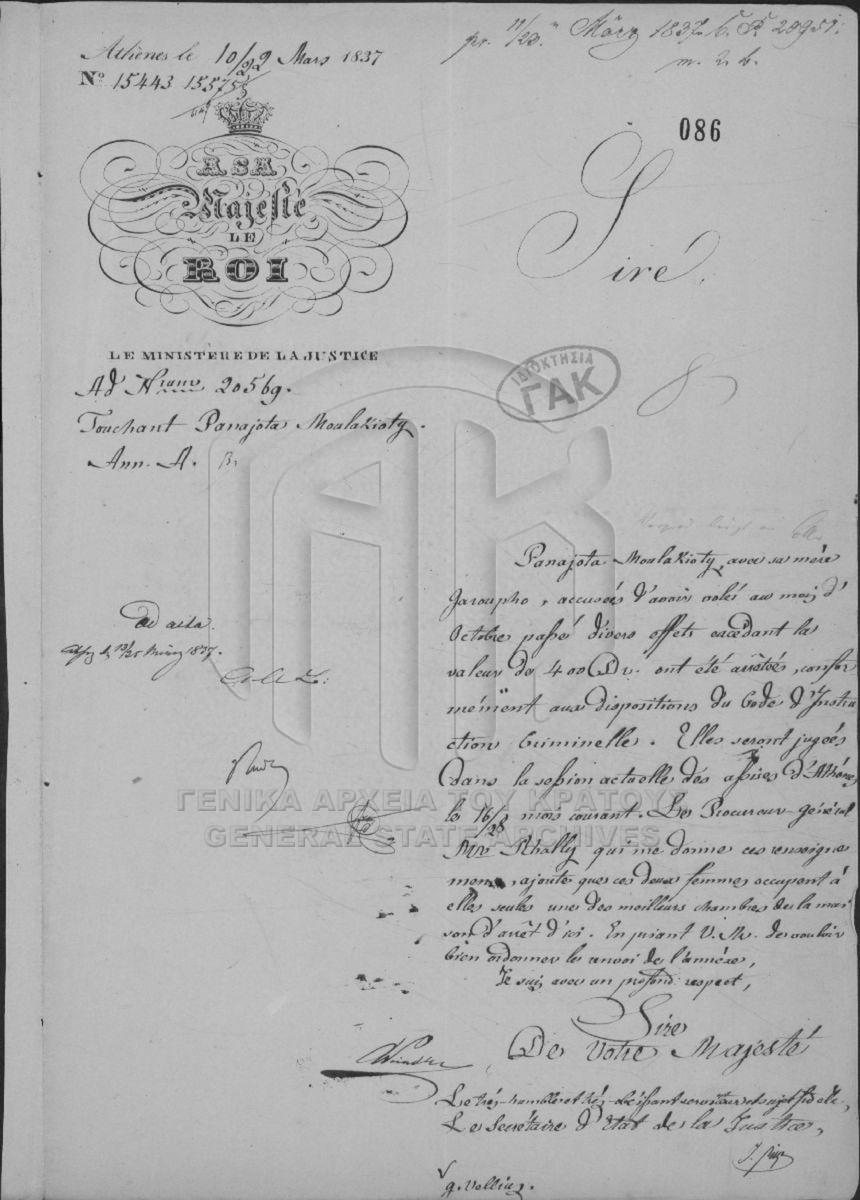 Athènes le 10/22 Mars 1837
Nº 15443 15575
pr. 11/23. März 1837.
086
A SA
Majesté
LE
ROI
Sire
LE MINISTÈRE DE LA JUSTICE
Ad Nrum 20569.
Touchant Panajota Moulakioty.
Ann. A.
ΙΔΙΟΚΤΗΣΙΑ
ΓΑΚ
Panajota Moulakioty, avec sa mère
Garoupho, accusées d'avoir volés au mois d'
Octobre passé divers effets excédant la
valeur de 400 Dr. ont été arrêtés, confor
mément aux dispositions du Code d'Instru
ction Criminelle. Elles seront jugées
dans la session actuelle des assises d'Athénes
le 16/28 mois courant. Le Procureur-général
Mr Rhally qui me donne ces renseigne
mens, ajoute que ces deux femmes occupent à
elles seules une des meilleurs chambres de la mai
son d'arrêt d'ici. En priant V. M. de vouloir
bien ordonner le renvoi de l'annéxe,
Je suis avec un profond respect,
Sire
De Votre Majesté
Le très-humble et très-obéissant serviteur et sujet fidèle,
Le Secrétaire d'Etat de la Justice,
Ad acta.
März 1837.
ΓΕΝΙΚΑ ΑΡΧΕΙΑ ΤΟΥ ΚΡΑΤΟΥΣ
GENERAL STATE ARCHIVES